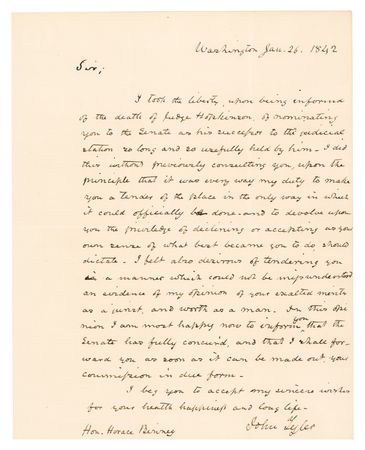 Washington Jan. 26. 1842
Sir,
I took the liberty, upon being informed
of the death of Judge Hopkinson, of nominating
you to the Senate as his successor to the judicial
station so long and so usefully held by him. I did
this without previously consulting you, upon the
principle that it was every way my duty to make
you a tender of the place in the only way in which
it could officially be done and to devolve upon
you the privilege of declining or accepting as your
own sense of what best became you to do should
dictate. I felt also desirous of tendering you
in a manner which could not be misunderstood
an evidence of my opinion of your exalted merits
as a jurist, and worth as a man. In this opi
nion I am most happy now to inform you that the
Senate has fully concurred, and that I shall for
ward you as soon as it can be made out, your
commission in due form.
I beg you to accept my sincere wishes
for your health happiness and long life.
John Tyler
Hon. Horace Binney